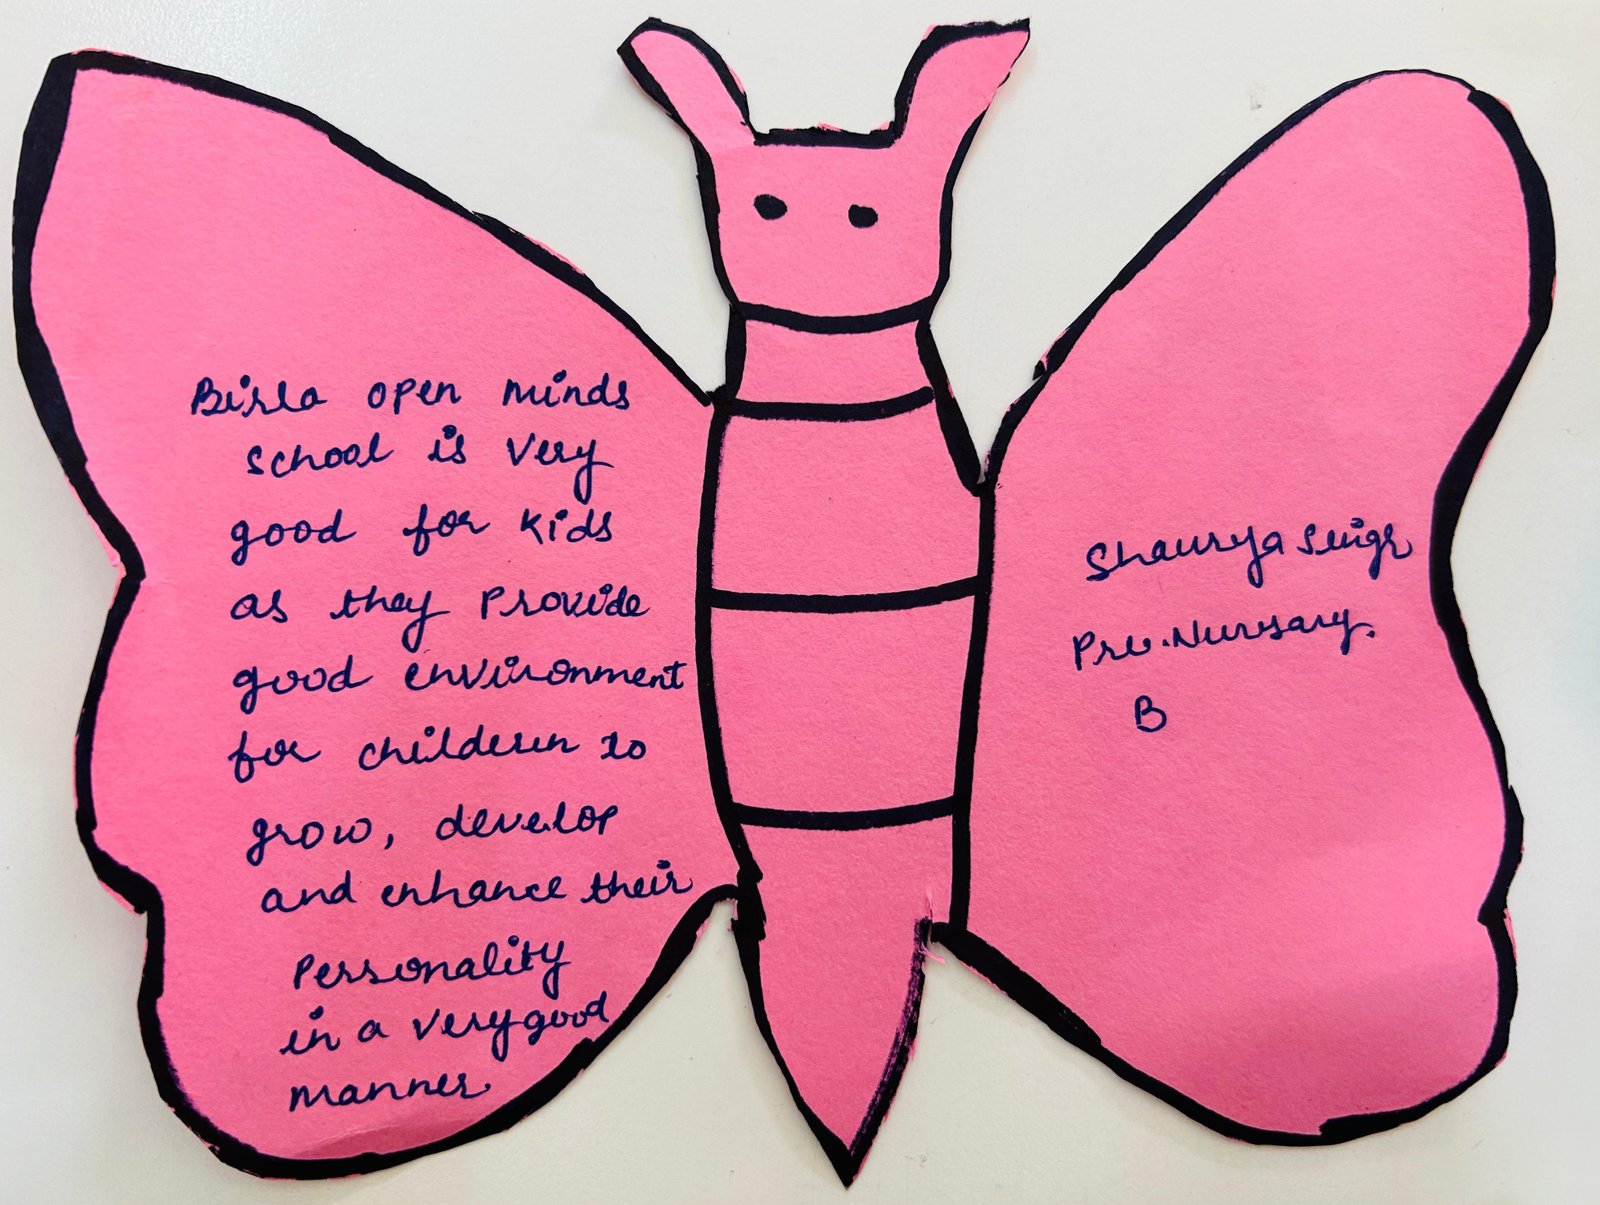 Birla open minds
school is very
good for kids
as they provide
good environment
for children to
grow, develop
and enhance their
Personality
in a very good
manner
Shaurya Singh
Pre-Nursary.
B